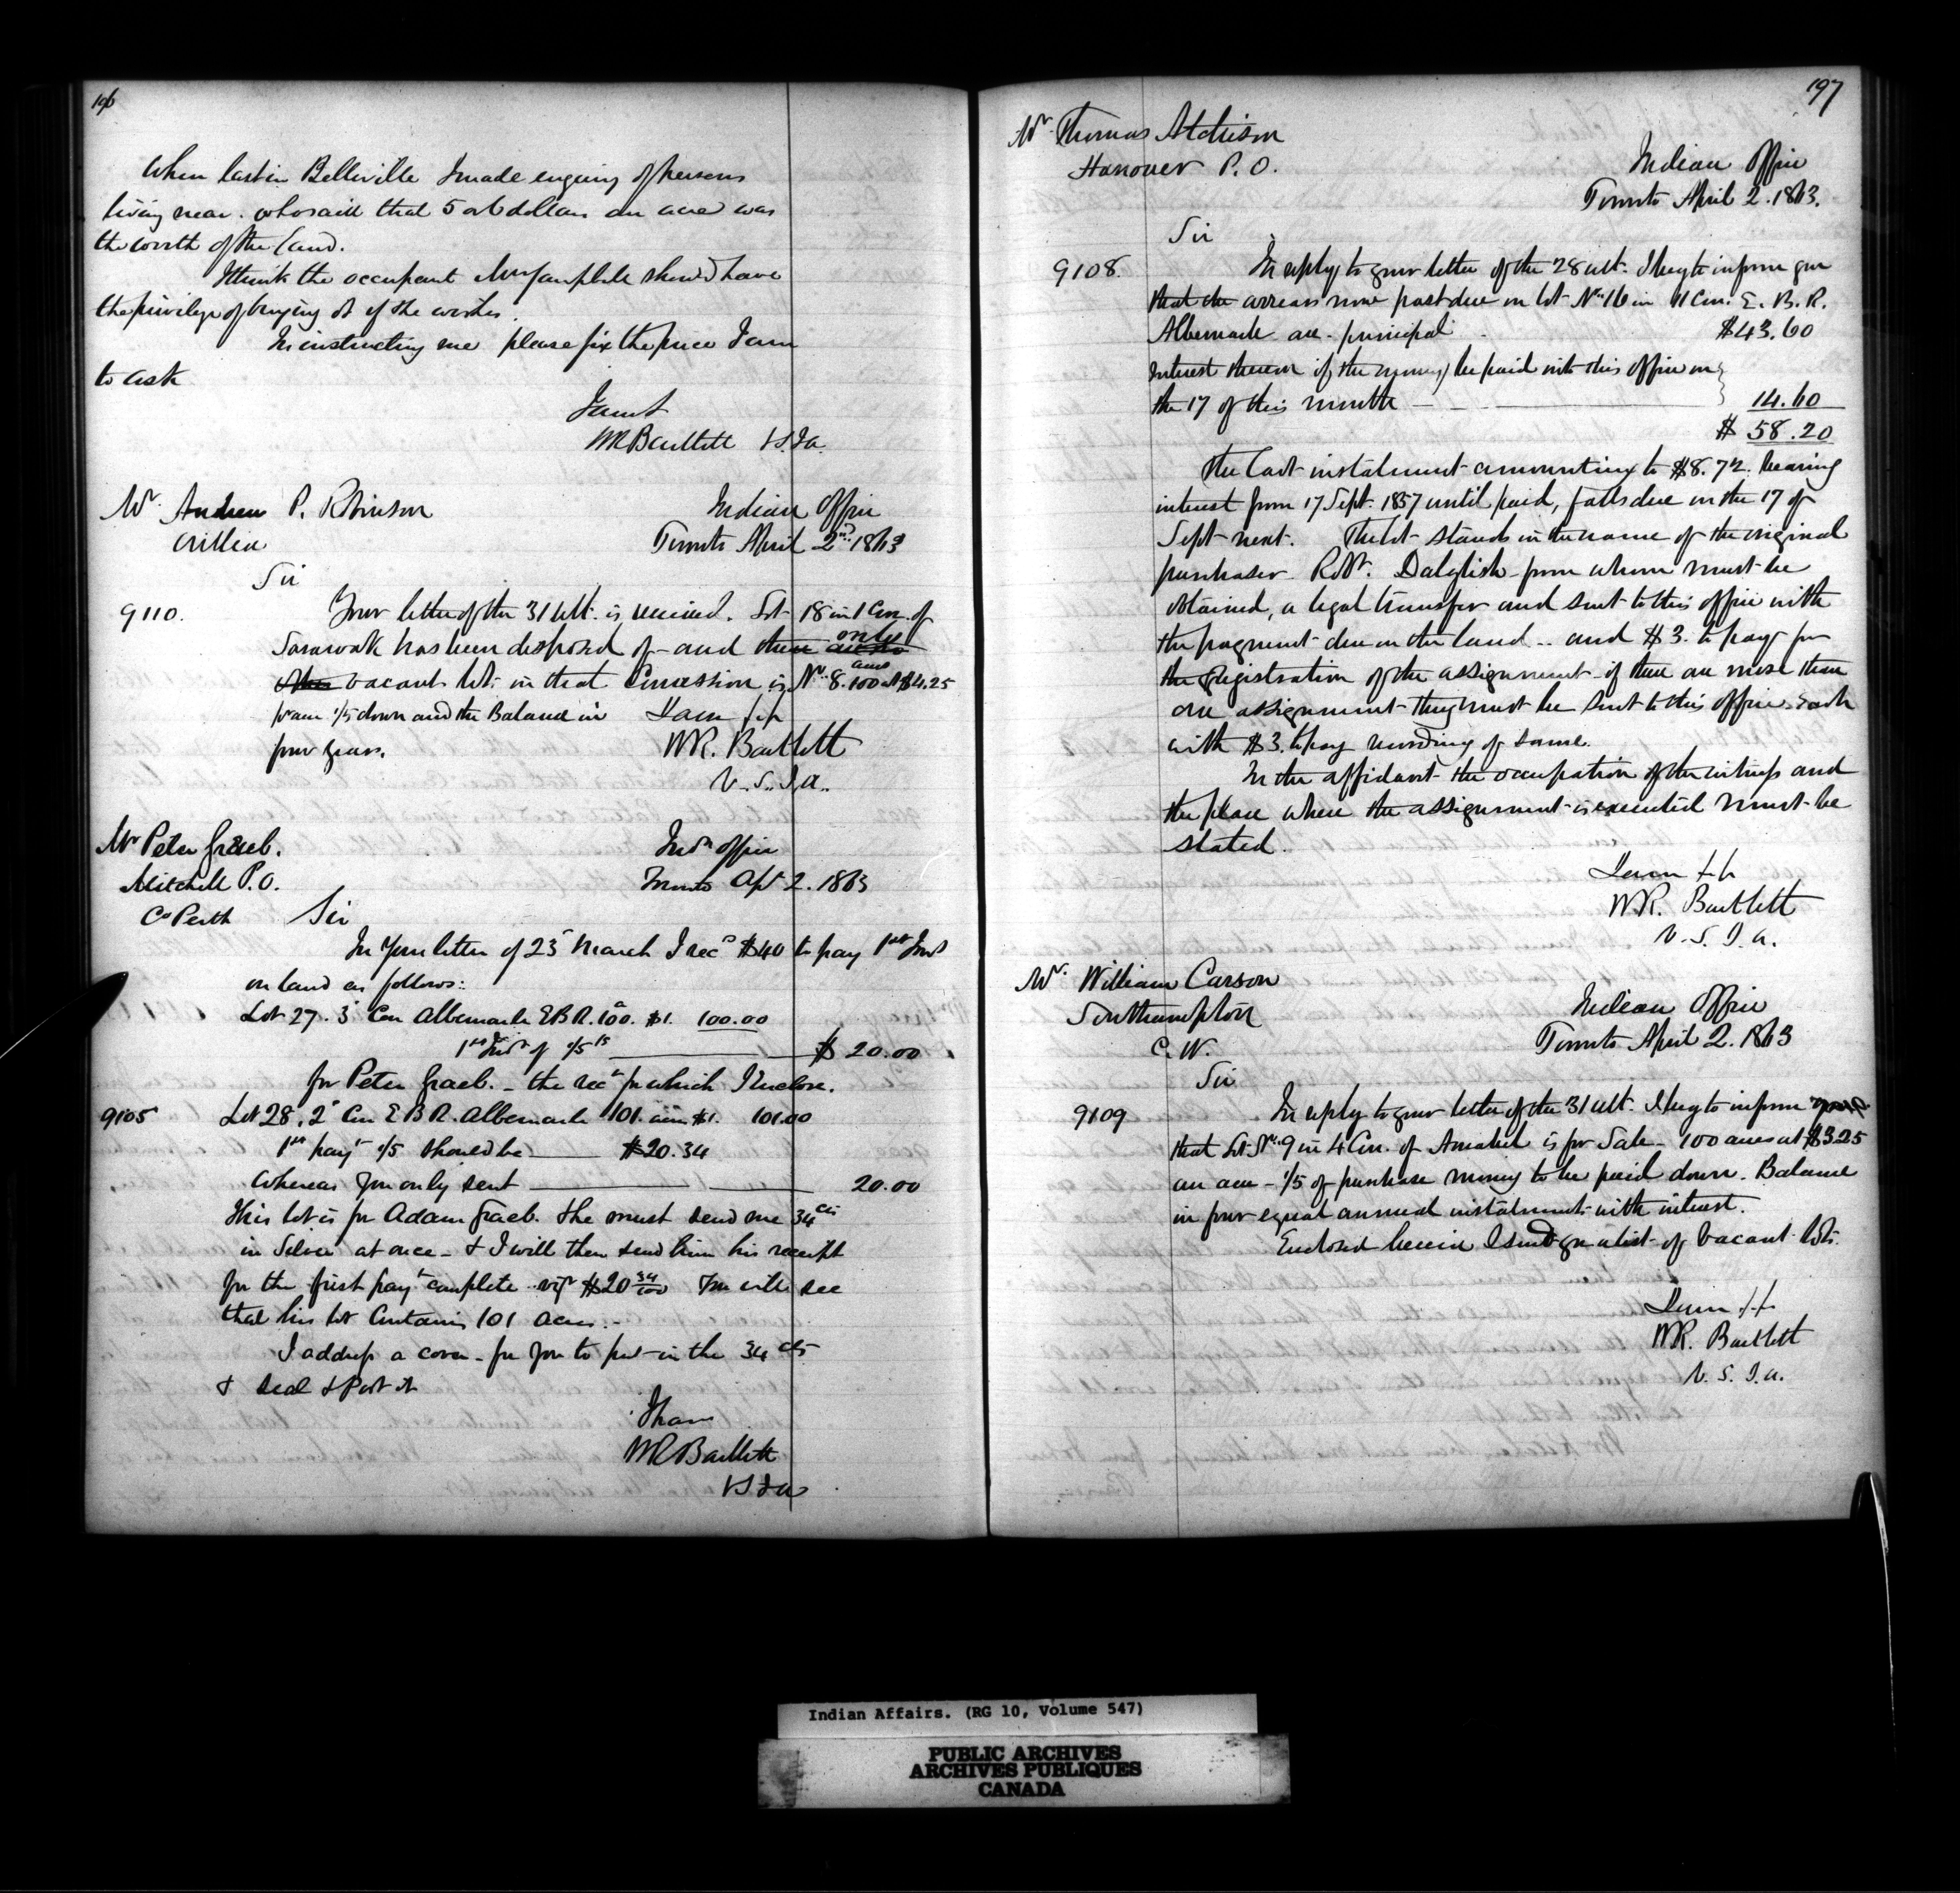 196
When last in Belleville I made enquiry of persons
living near. who said that 5 or 6 dollars an acre was
the worth of the land.
I think the occupant should have
the privilege of buying it if she wishes.
In instructing me please fix the price I am
to ask
I am &
WR Bartlett V.S.I.a.
Mr. Andrew P. Robinson
Orillia
Indian Office
Toronto April 2nd. 1863
Sir
9110.
Your letter of the 31 ult. is received. Lot 18 in 1 Con. of
Sarawak has been disposed of - and there are no only
other vacant lot in that Concession is No. 8. 100 acres at $4.25
pr acre 1/5 down and the Balance in
four years.
I am &c
WR. Bartlett
V.S.I.a.
Mr Peter Graeb.
Mitchell P.O.
Co Perth
Indn office
Toronto Apl 2. 1863
Sir
In your letter of 23d March I recd $40 to pay 1st Inst
on land as follows:
Lot 27. 3d Con Albemarle EBR. 100a. $1. 100.00
1st Inst of 1/5th $ 20.00
for Peter Graeb. - the rect for which I Enclose.
9105
Lot 28. 2d Con E B R. Albemarle 101. acres $1. 101.00
1st payt 1/5 should be $20.34
Whereas you only sent 20.00
This lot is for Adam Graeb. & he must send me 34 cts
in Silver at once - & I will then send him his receipt
for the first payt complete viz $20 34/100 You will see
that his lot Contains 101 acres. -
I address a cover - for you to put in the 34 cts
& seal & Post it
I have
WR Bartlett
VSIa
197
Mr. Thomas Atchison
Hanover P.O.
Indian Office
Toronto April 2. 1863.
Sir
9108.
In reply to your letter of the 28 ult. I beg to inform you
that the arrears now past due on lot No. 16 in 11 Con. E. B. R.
Albemarle are. principal $43.60
Interest thereon if the money be paid into this office on
the 17 of this month 14.60
$ 58.20
The last instalment amounting to $8.72. bearing
interest from 17 Sept. 1857 until paid, falls due on the 17 of
Sept next. The lot stands in the name of the original
purchaser Robt. Dalglish - from whom must be
obtained, a legal transfer and sent to this office with
the payment due on the land - and $3. to pay for
the Registration of the assignment - if there are more than
one assignment they must be sent to this office. each
with $3. to pay recording of same.
In the affidavit the occupation of the witness and
the place where the assignment is executed must be
stated.
I am &c
WR. Bartlett
V.S.I.a.
Mr. William Carson
Southampton
C.W.
Indian Office
Toronto April 2. 1863
Sir
9109
In reply to your letter of the 31 ult. I beg to inform you
that Lot No. 9 in 4 Con. of Amabel is for Sale - 100 acres at $3.25
an acre - 1/5 of purchase money to be paid down. Balance
in four equal annual instalments with interest.
Enclosed herein I send you a list of vacant lots.
I am &c
WR. Bartlett
V.S.I.a.
Indian Affairs. (RG 10, Volume 547)
PUBLIC ARCHIVES
ARCHIVES PUBLIQUES
CANADA